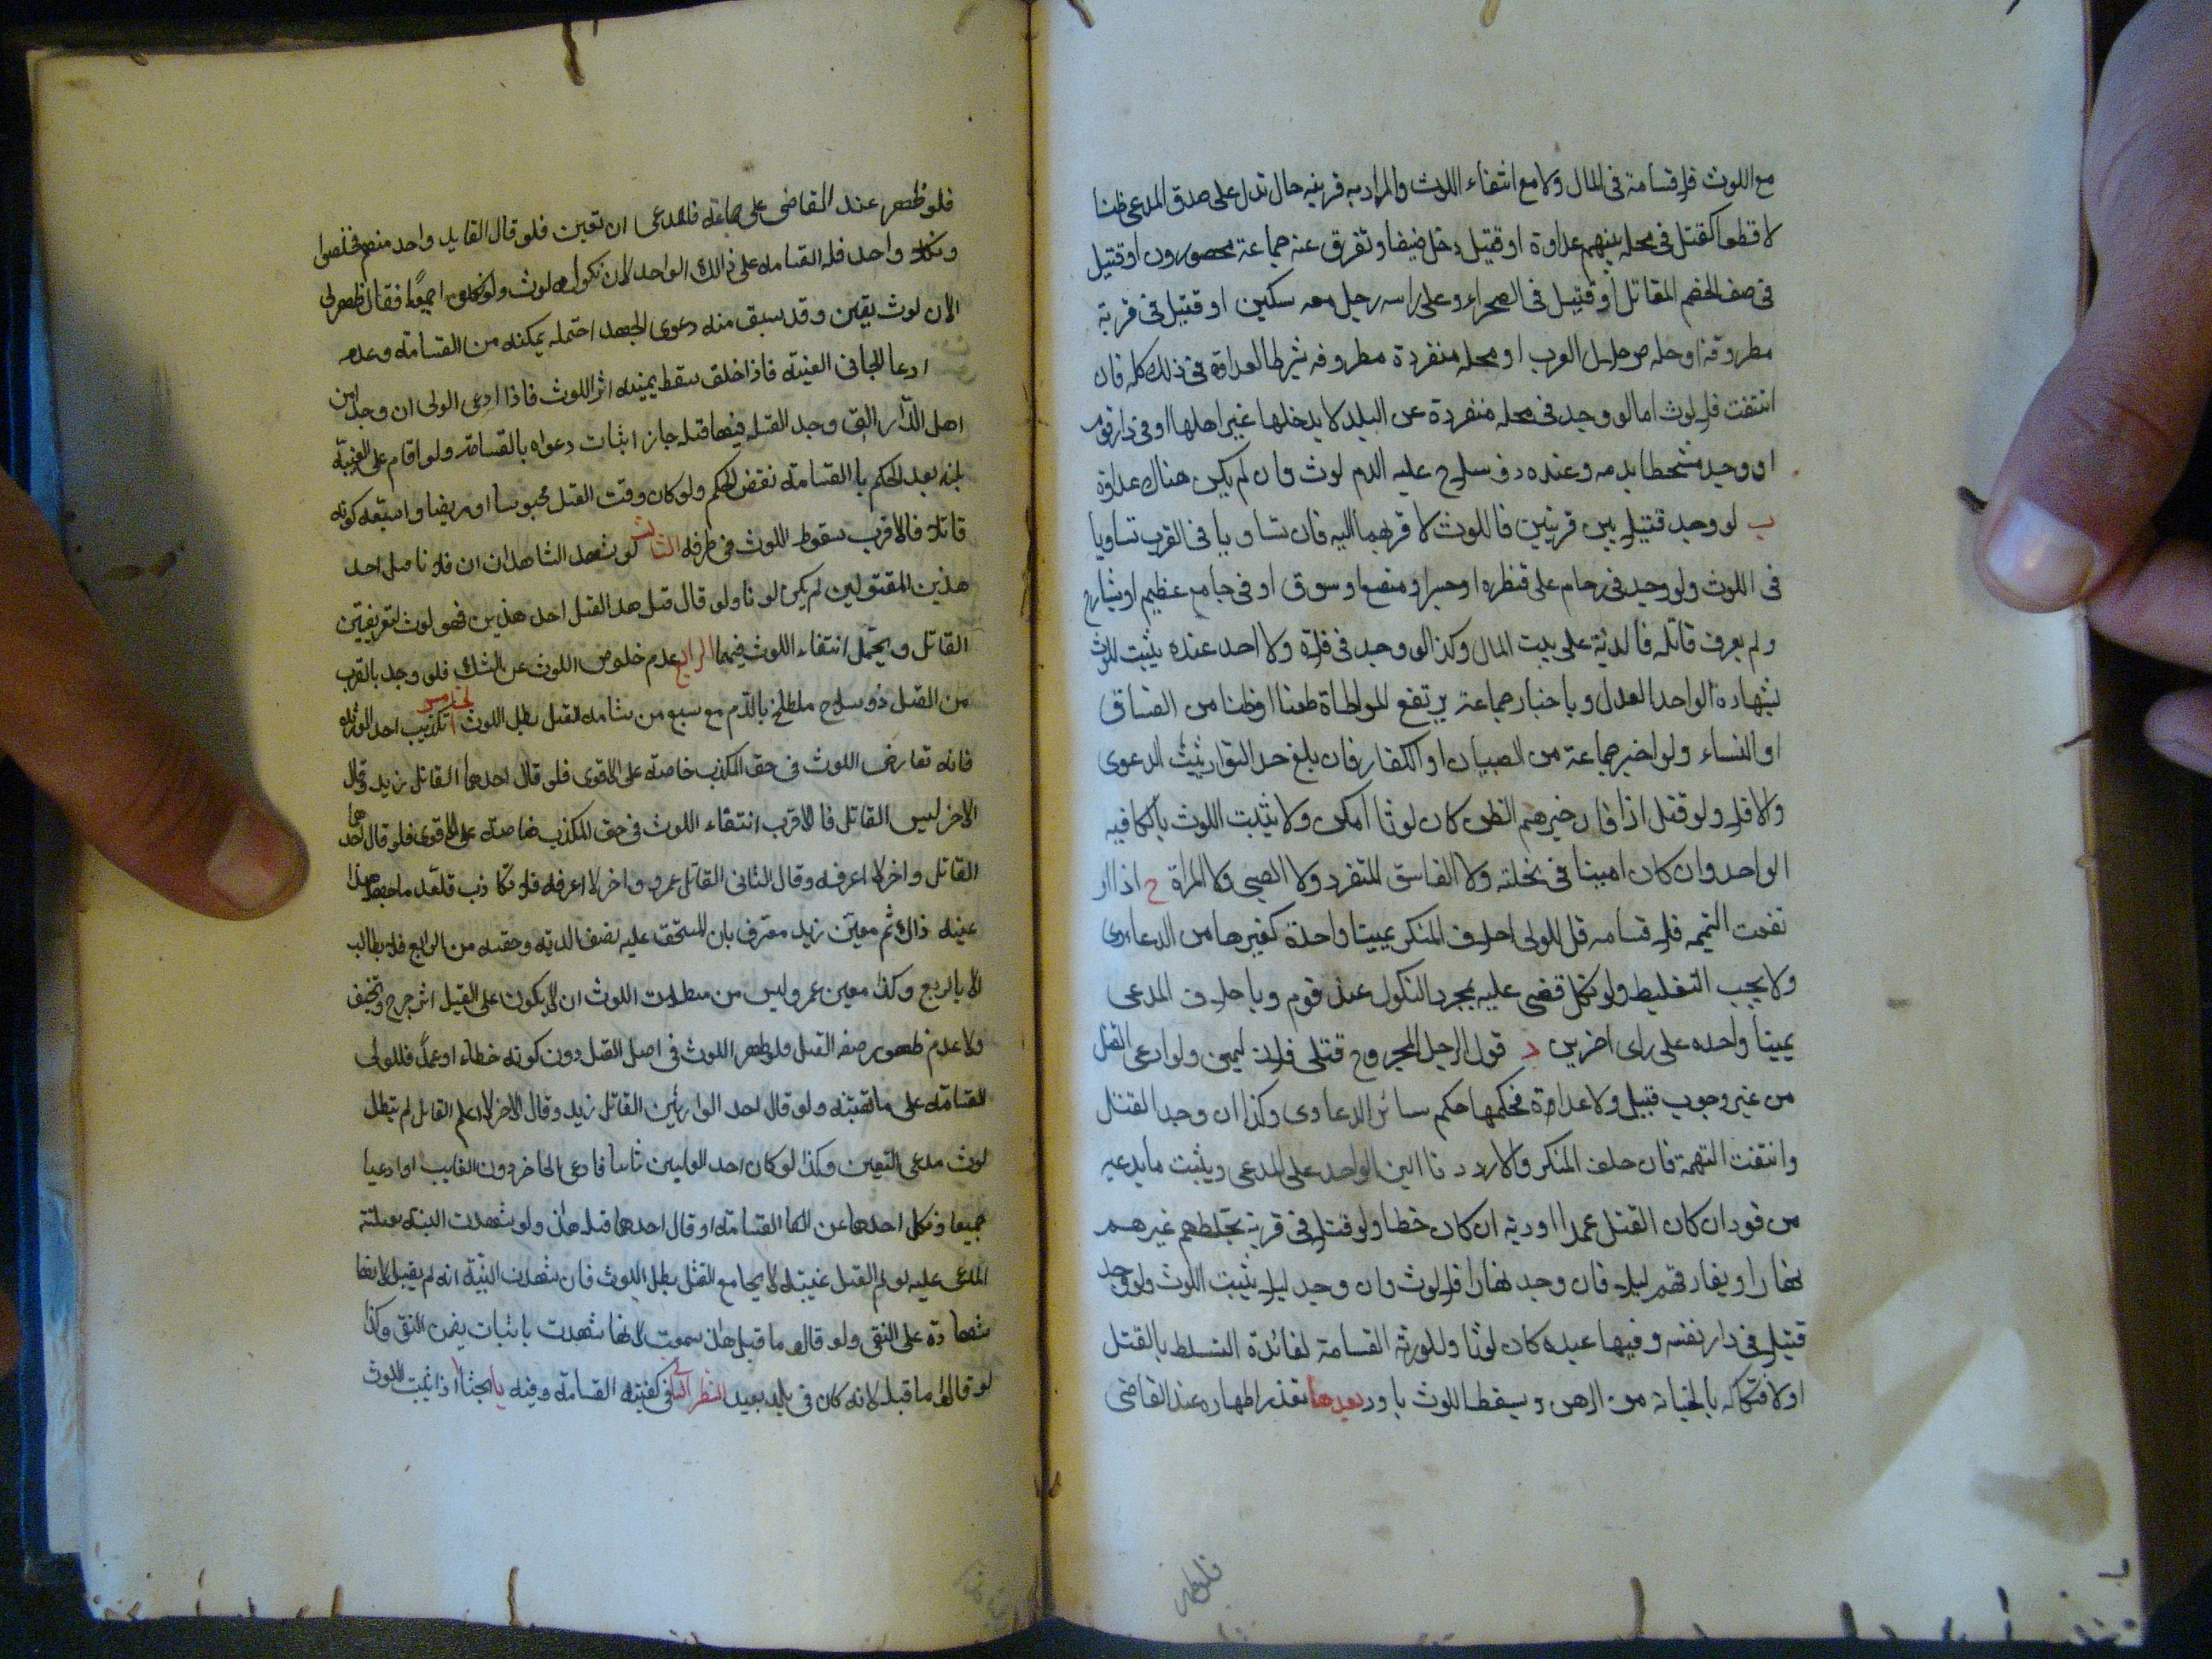 مع اللوث فلا قسامة فى المال ولا مع انتفاء اللوث والمراد به قرينه حال تدل على صدق المدعى ظنا
لا قطعا كقتل فى محله بينهم عداوة او قتيل دخل ضيفا وتفرق عنه جماعة محصورون او قتيل
فى صف الخصم المقاتل او قتيل فى الصحراء وعلى راسه رجل معه سكين او قتيل فى قرية
مطروقة او حله من حلل العرب او محله منفردة مطروقه بشرط العداوة فى ذلك كله فان
انتفت فلا لوث اما لو وجد فى محله منفردة عن البلد لا يدخلها غير اهلها او فى دار قوم
او وجد متشحطا بدمه وعنده ذو سلاح عليه الدم لوث وان لم يكن هناك عداوة
ب لو وجد قتيلا بين قريتين فاللوث لاقربهما اليه فان تساويا فى القرب تساويا
فى اللوث ولو وجد فى زحام على قنطره او جسر او مصنع او سوق او فى جامع عظيم او شارع
ولم يعرف قاتله فالدية على بيت المال وكذا لو وجد فى فلاة ولا احد عنده يثبت اللوث
بشهادة الواحد العدل وباخبار جماعة يرتفع المواطاة طعنا او ظنا من الفساق
او النساء ولو اخبر جماعة من الصبيان او الكفار فان بلغ حد التواتر يثبت الدعوى
والا فلا ولو قيل اذا فان خبرهم الظن كان لوثا امكن ولا يثبت اللوث بالكافيه
الواحد وان كان امينا فى نحلته ولا الفاسق المتفرد ولا الصبى ولا المراة ح اذا ار
تفعت التهمه فلا قسامه قل للولى احلاف المنكر يمينا واحدة كغيرها من الدعاوى
ولا يجب التغليظ ولو نكل قضى عليه بمجرد النكول عند قوم وباحلاف المدعى
يمينا واحده على راى اخرين د قول الرجل المجروح قتلى فلان ليس ولو ادعى القتل
من غير وجوب قتيل ولا عداوة فحكمها حكم سائر الدعاوى وكذا ان وجد القتل
وانتفت التهمة فان حلف المنكر والا ردد نا اليمين الواحد على المدعى ويثبت ما يدعيه
من قود ان كان القتل عمدا او دية ان كان خطا ولو قتل فى قرية يختلطهم غيرهم
نهارا ويفارقهم ليلا فان وجد نهارا فلا لوث وان وجد ليلا يثبت اللوث ولو وجد
قتيلا فى دار نفسه وفيها عبده كان لوثا وللورثه القسامة لفائدة التسلط بالقتل
او لافتكاكه بالخيانة من الرهن ويسقط اللوث بامور بعيدها تعذر اظهاره عند القاضى
فلو ظهر
فلو ظهر عند القاضى على جماعة فللمدعى ان تعين فلو قال القايل واحد منهم فخلصوا
ونكل واحد فله القسامه على ذلك الواحد لان نكوله لوث ولو نكلوا جميعا فقال ظهر لى
الان لوث يقين وقد سبق منه دعوى الجهد احتمله يمكنه من القسامة وعدمه
ادعا الجانى الغيبه فاذا حلف سقط بيمينه اثر اللوث فاذا ادعى الولى ان وجد من
اهل الدار التى وجد القتيل فيها قتله جاز اثبات دعواه بالقسامة ولو اقام على الغيبة
بينه بعد الحكم بالقسامه نقض الحكم ولو كان وقت القتل محبوسا او مريضا واستبعد كونه
قاتلا فالاقرب سقوط اللوث فى طرفه الثالث لو شهد الشاهدان ان فلانا قتل احد
هذين المقتولين لم يكن لوثا ولو قال قتل هذا القتيل احد هذين فهو لوث لتعريفتين
القاتل ويحتمل انتفاء اللوث فيهما الرابع عدم خلوص اللوث عن الشك فلو وجد بالقرب
من القتيل ذو سلاح ملطخ بالدم مع سبع من شانه القتل بطل اللوث الخامس تكذيب احد الورثه
فانه تعارض اللوث فى حق المكذب خاصة على الاقوى فلو قال احدهما القاتل زيد وقال
الاخر ليس القاتل فالاقرب انتفاء اللوث فى حق المكذب خاصة على الاقوى فلو قال احدهما
القاتل واخر لا اعرفه وقال الثانى القاتل عمرو واخر لا اعرفه فلا تكاذب فلعله ما جهله هذا
عينه ذاك ثم معين زيد معترف بان المستحق عليه نصف الديه وحقه من الرابع فلا يطالب
الا بالربع وكذا معين عمرو وليس من مبطلات اللوث ان لا يكون على القتيل اثر جرح وتخنيف
ولا عدم ظهور صفه القتل فلو ظهر اللوث فى اصل القتل دون كونه خطاء او عمدا فللولى
القسامه على ما تعينه ولو قال احد الوارثين القاتل زيد وقال الاخر لا اعلم القاتل لم تبطل
لوث مدعى التعين وكذا لو كان احد الوليين غائبا فادعى الحاضر دون الغايب او ادعيا
جميعا ونكل احدهما عن القسامه او قال احدهما قتله هذا ولو شهدت البينه بعينه
المدعى عليه لو لم القتل غيبته لا يجامع القتل بطل اللوث فان شهدت البينة انه لم يقتله لانها
شهادة على النفى ولو قالوا ما قتل هذا سمعت لانها شهدت باثبات يضمن النفى وكذا
لو قالوا ما قتله لانه كان فى بلد بعيد النظر الثانى كيفيته القسامة وفيه يا بحثا ا اذا ثبت اللوث